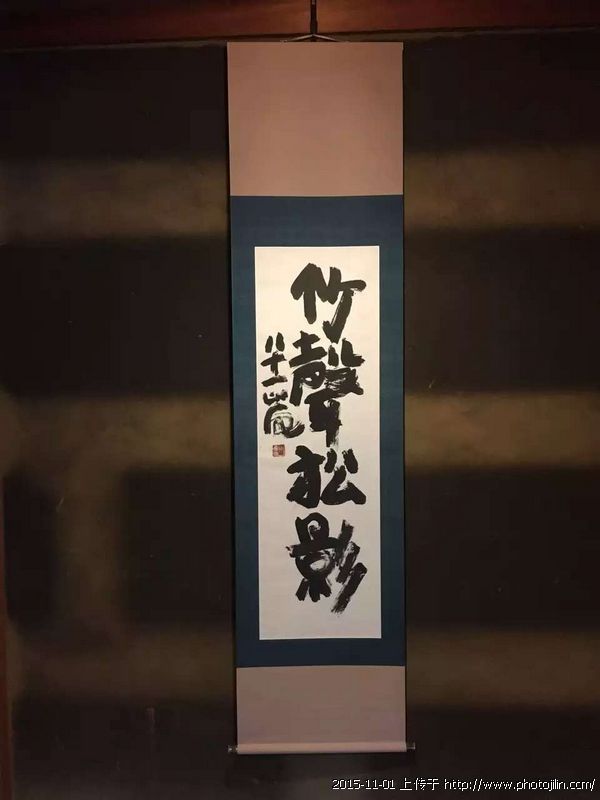 竹聲松影
八十一
2015-11-01 上传于 http://www.photojilin.com/